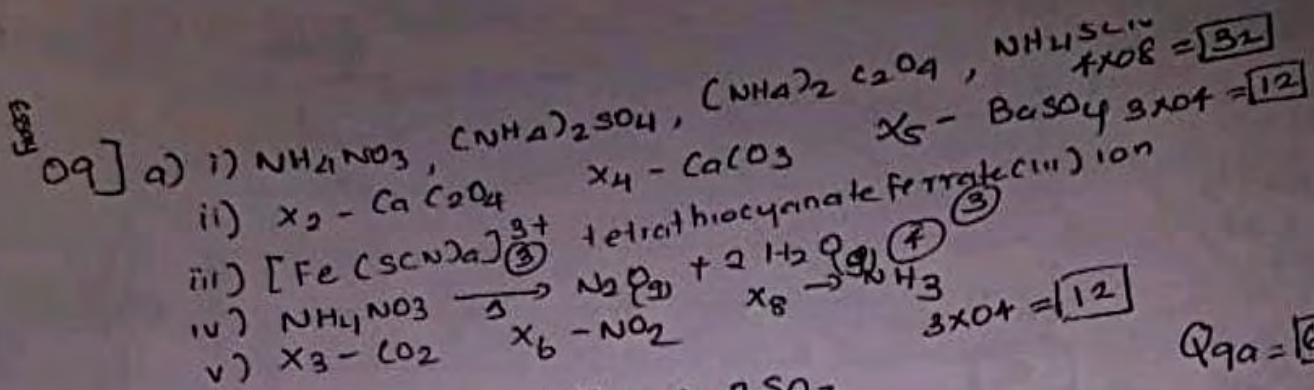 09] a) i) NH4NO3, (NH4)2SO4, (NH4)2 C2O4, NH4SCN 4x08 = 32
ii) x2 - CaC2O4 x4 - CaCO3 x5 - BaSO4 3x04 = 12
iii) [Fe(SCN)4]3+ ③ tetrathiocyanate ferrate(iii) ion ③
iv) NH4NO3 → N2O(g) + 2H2O(g) ④
v) x3 - CO2 x6 - NO2 x8 → NH3 3x04 = 12
Q9a =